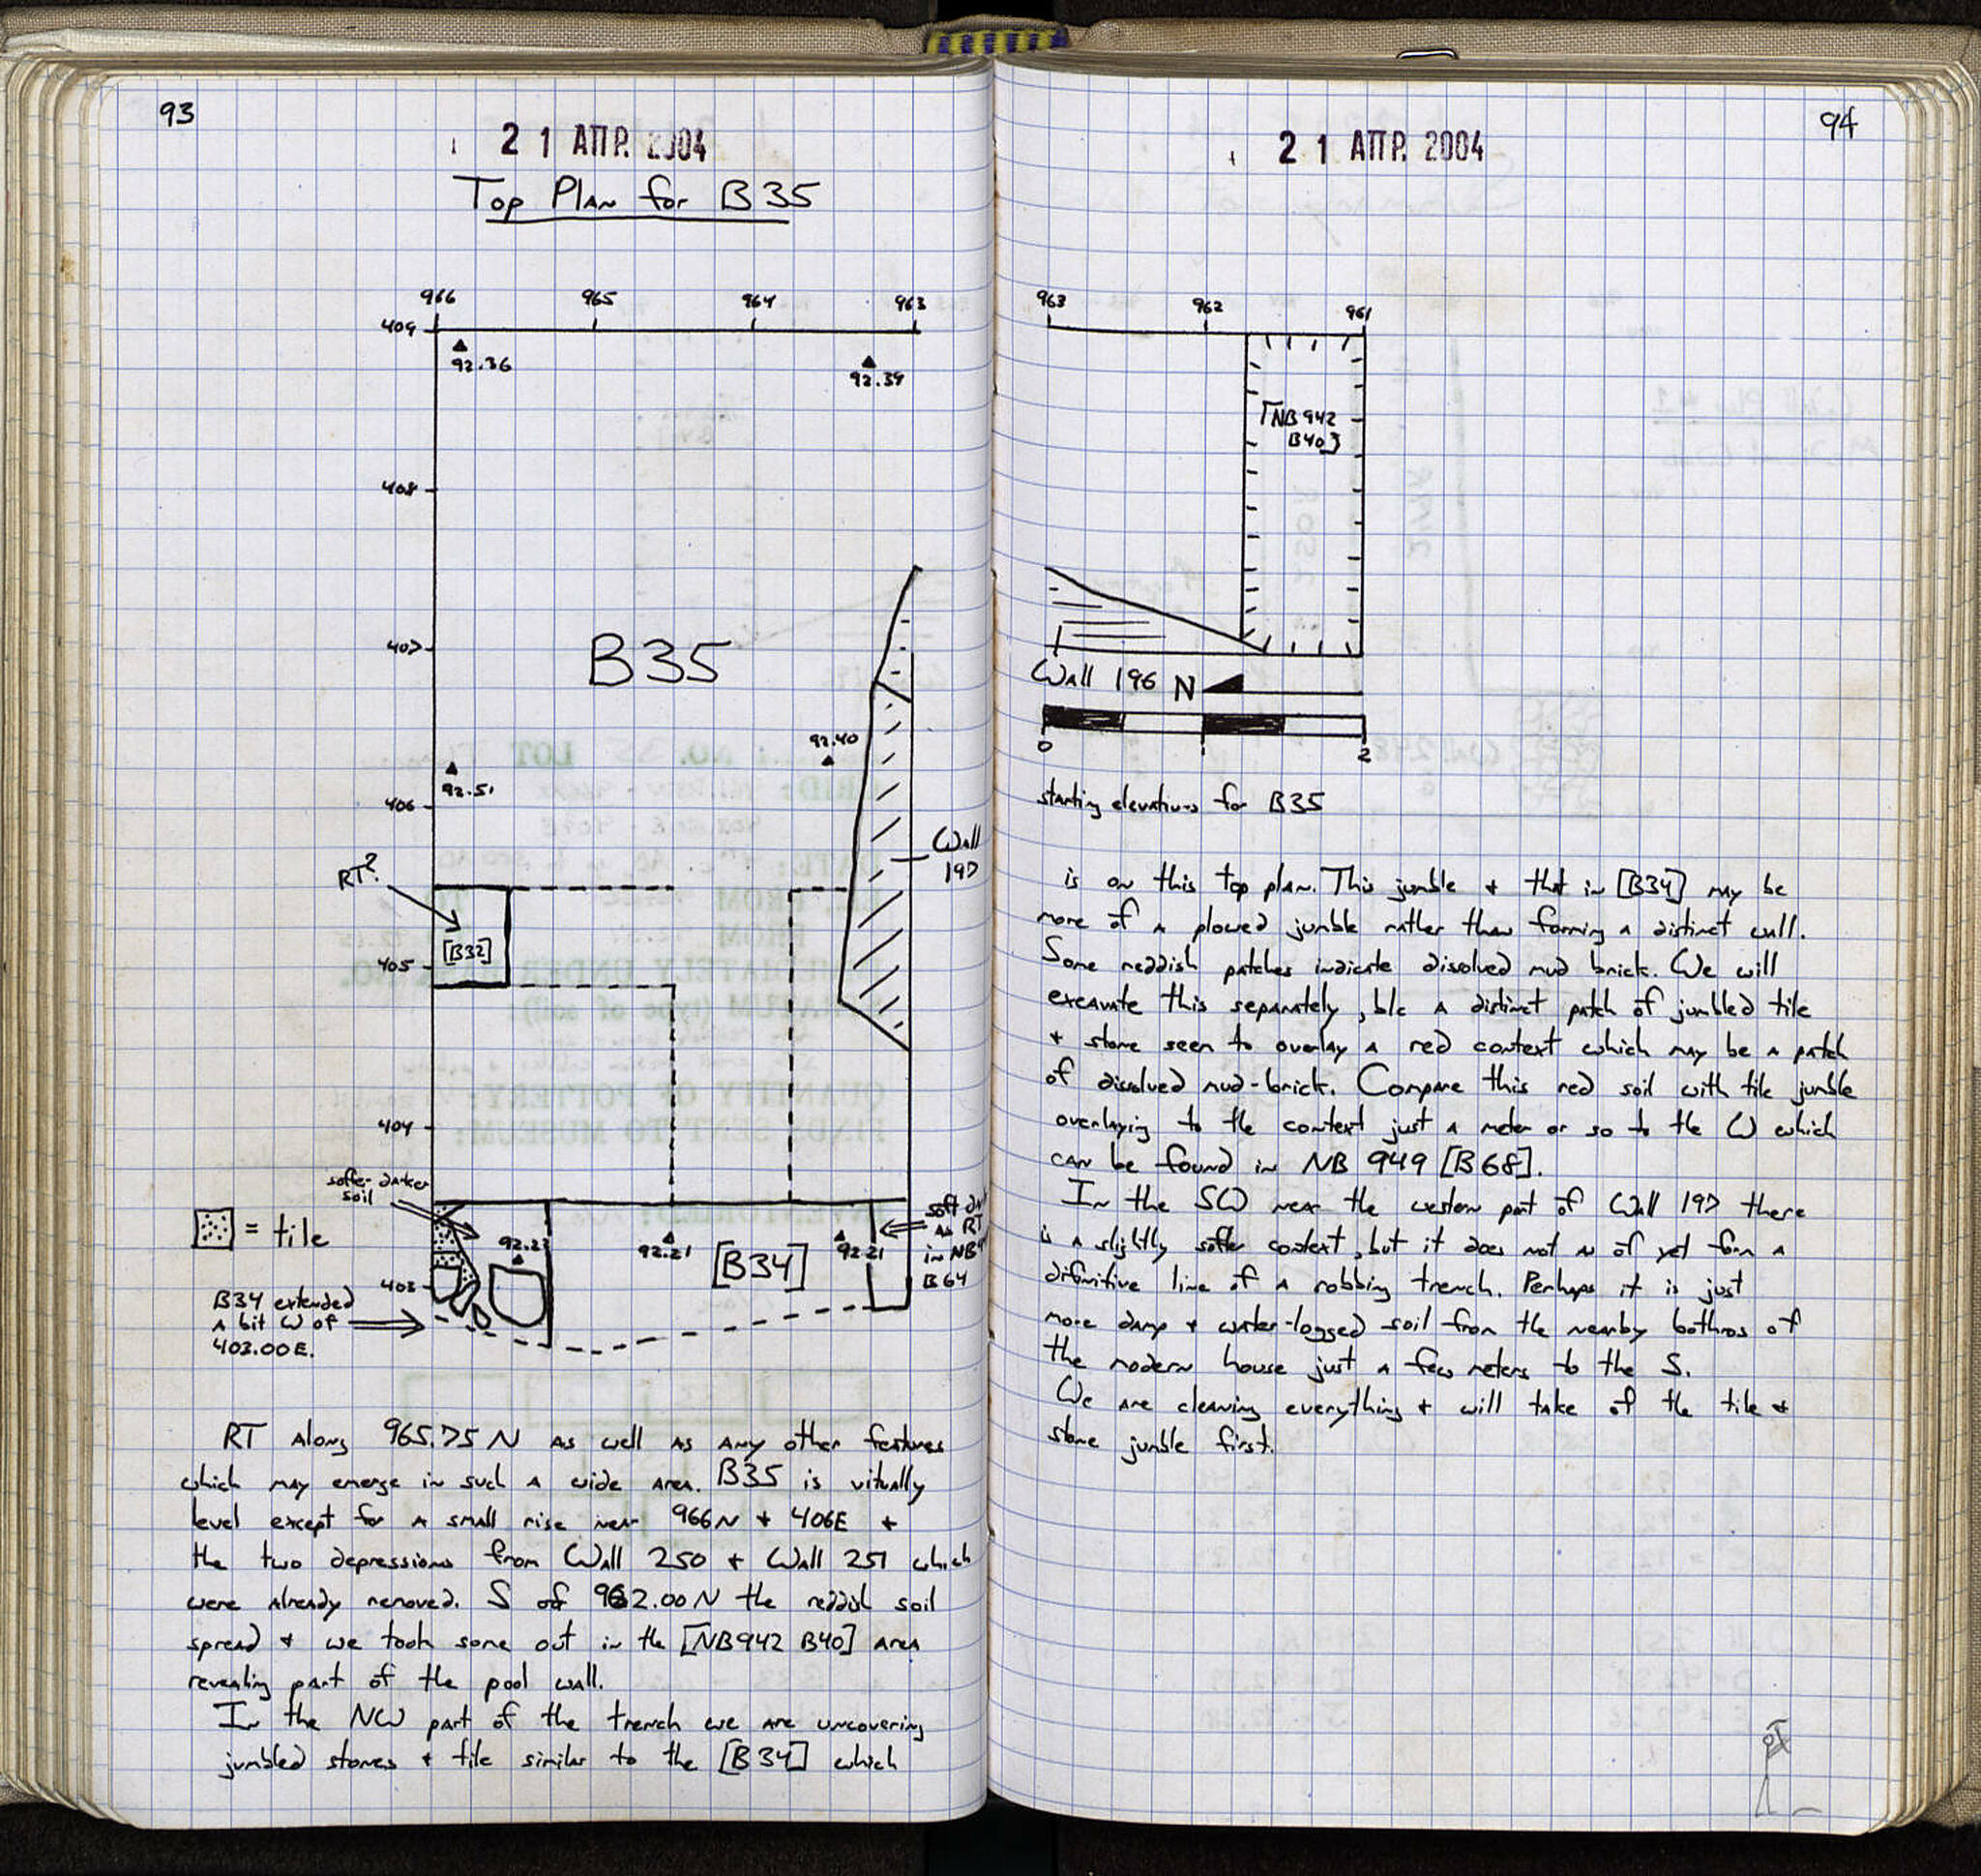 93
2 1 ΑΠΡ. 2004
Top Plan for B35
966 965 964 963
409
92.36
92.39
408
407
B35
92.40
92.51
406
Wall
197
RT?
[B32]
405
404
softer darker
soil
= tile
soft
as RT
in NB
B64
92.21
92.21
[B34]
403
B34 extended
a bit W of
403.00E.
RT along 965.75 N as well as any other features
which may emerge in such a wide area. B35 is vitually
level except for a small rise near 966N + 406E +
the two depressions from Wall 250 + Wall 251 which
were already removed. S of 962.00 N the reddish soil
spread + we took some out in the [NB942 B40] area
revealing part of the pool wall.
In the NW part of the trench we are uncovering
jumbled stones + tile similar to the [B34] which
94
2 1 ΑΠΡ. 2004
963 962 961
[NB 942
B40]
Wall 196 N
0 1 2
starting elevations for B35
is on this top plan. This jumble + that in [B34] may be
more of a plowed jumble rather than forming a distinct wall.
Some reddish patches indicate disolved mud brick. We will
excavate this separately, b/c a distinct patch of jumbled tile
+ stone seen to overlay a red context which may be a patch
of dissolved mud-brick. Compare this red soil with tile jumble
overlaying to the context just a meter or so to the W which
can be found in NB 949 [B68].
In the SW near the western part of Wall 197 there
is a slightly softer context, but it does not as of yet form a
difinitive line of a robbing trench. Perhaps it is just
more damp + water-logged soil from the nearby bothros of
the modern house just a few meters to the S.
We are cleaning everything + will take of the tile +
stone jumble first.